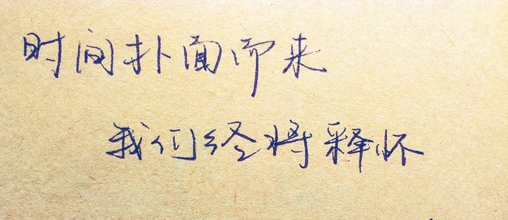 时间扑面而来
我们终将释怀